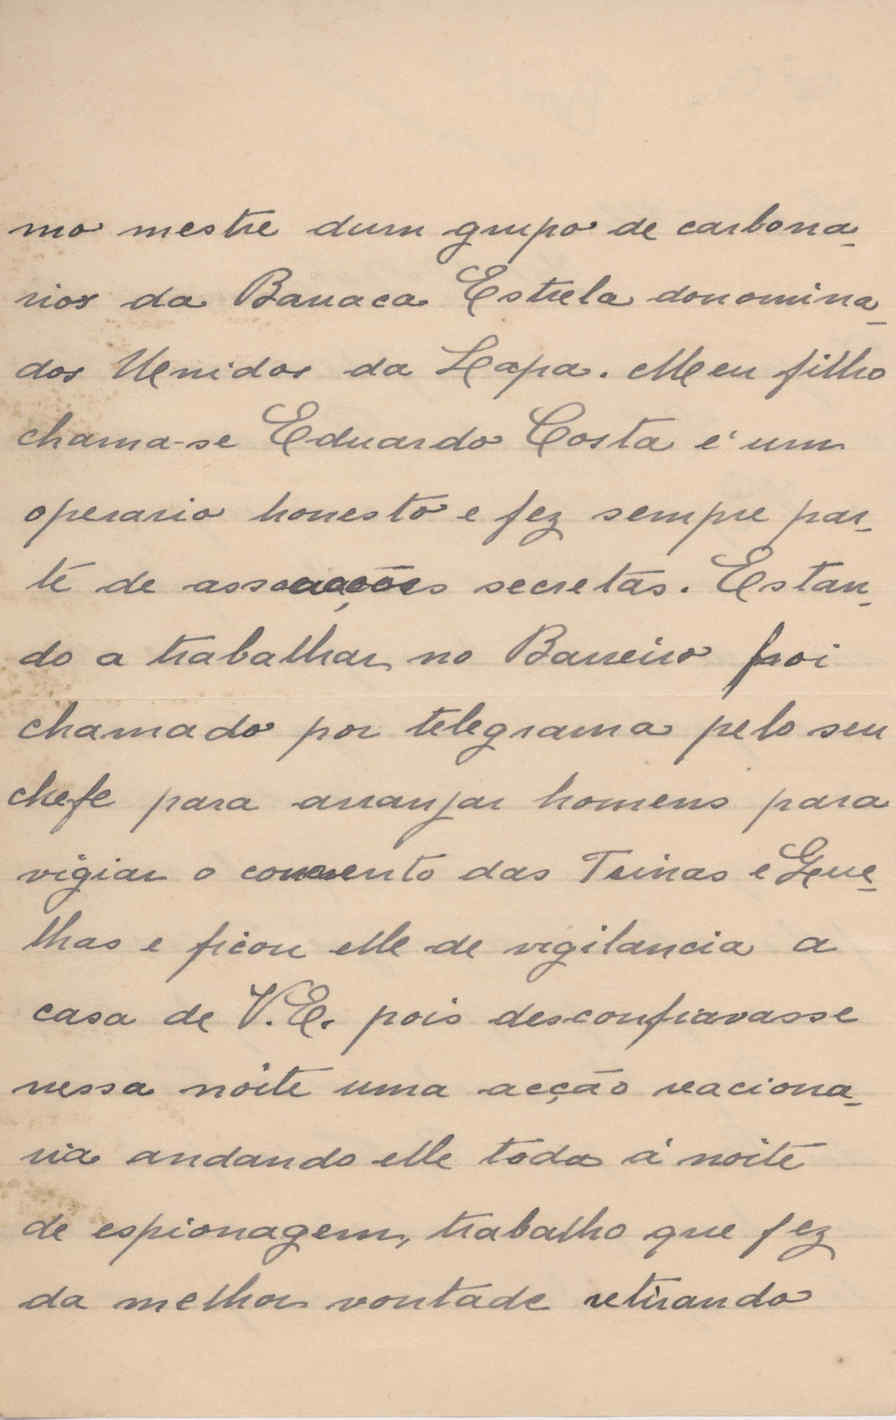 mo mestre dum grupo de carbona-
rios da Barraca Estrela donomina-
dos Unidos da Lapa. Meu filho
chama-se Eduardo Costa é um
operario honesto e fez sempre par-
te de associações secretas. Estan-
do a trabalhar no Barreiro foi
chamado por telegrama pelo seu
chefe para arranjar homens para
vigiar o convento das Trinas e Que-
lhas e ficou elle de vigilancia a
casa de V.E. pois desconfiavasse
nessa noite uma acção reaciona-
ria andando elle toda á noite
de espionagem, trabalho que fez
da melhor vontade retirando